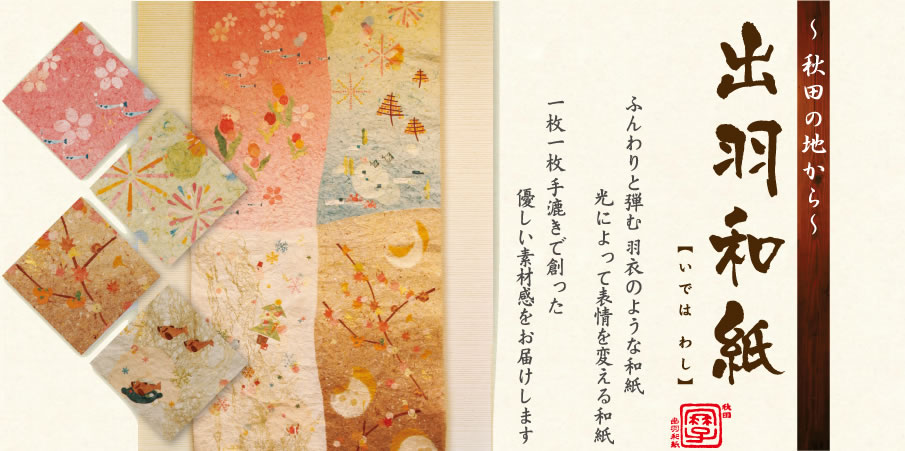 ～秋田の地から～
出羽和紙
【いでは わし】
ふんわりと弾む 羽衣のような和紙
光によって表情を変える和紙
一枚一枚 手漉きで創った
優しい素材感をお届けします
秋田
出羽和紙